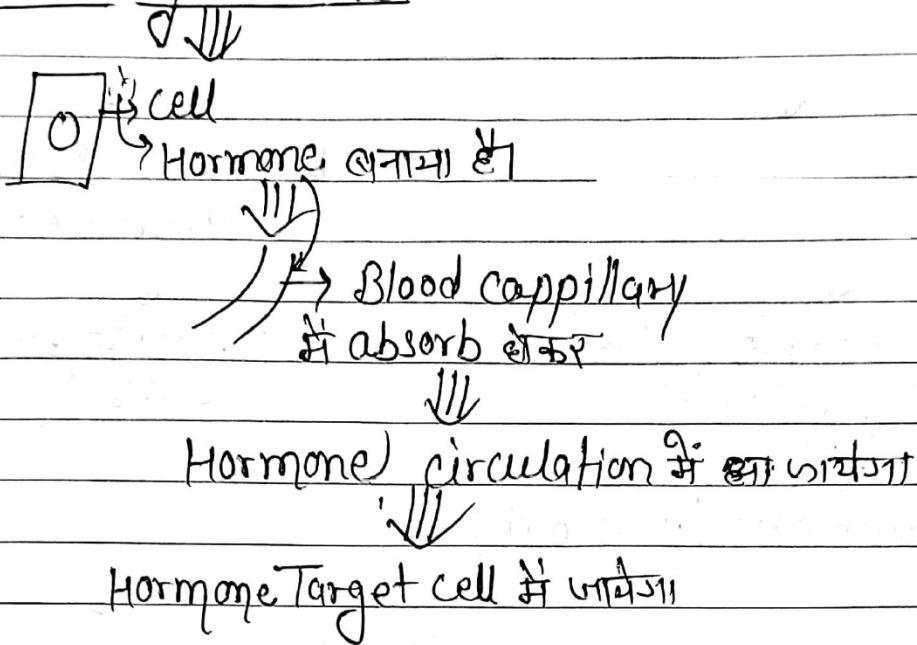 में cell
Hormone बनाया है।
Blood cappillary
में absorb होकर
Hormone circulation में आ जायेगा
Hormone Target cell में जायेगा